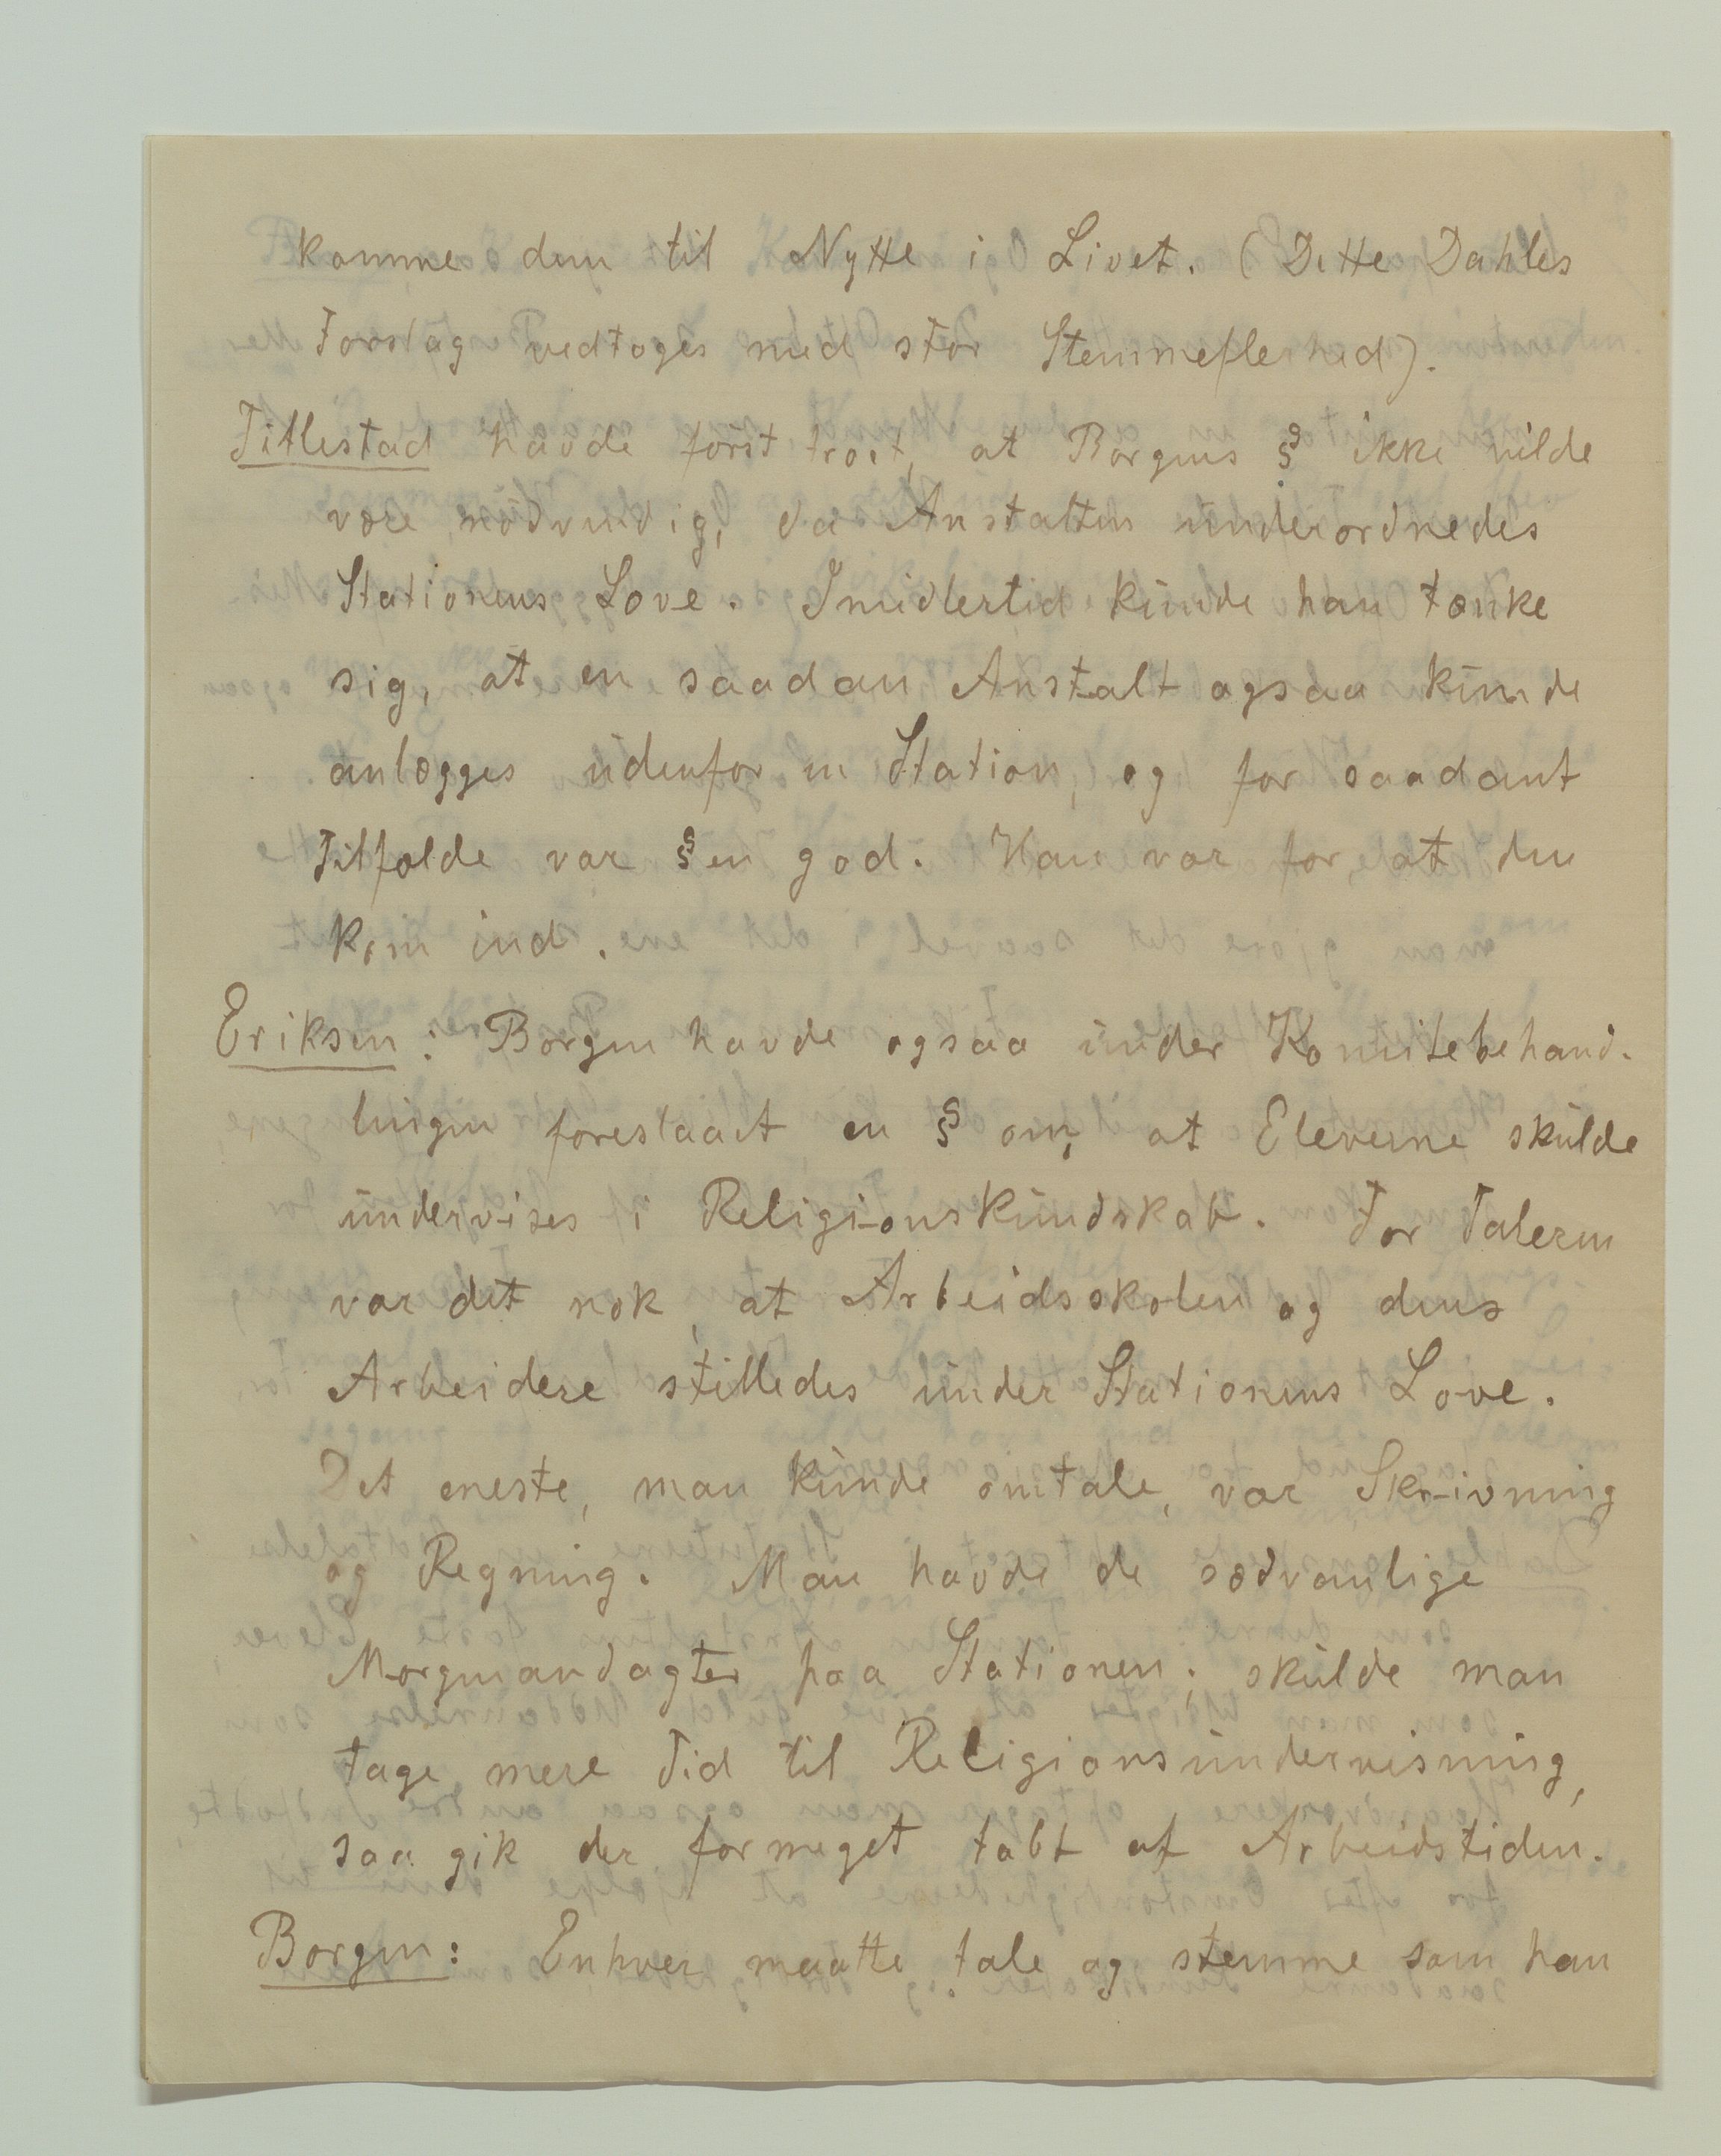 komme dem til Nytte i Livet. (Dette Dahles
Forslag vedtoges med stor Stemmeflerhed).
Tillestad havde först troet, at Borgens § ikke vilde
være nödvendig, da Anstalten underordnedes
Stationens Love. Imidlertid kunde han tænke
sig, at en saadan Anstalt ogsaa kunde
anlægges udenfor en Station, og for saadant
Tilfælde var §en god. Han var for, at den
kom ind.
Eriksen: Borgen havde ogsaa under Komitebehand-
lingen foreslaaet en § om, at Eleverne skulde
undervises i Religionskundskab. For Taleren
var det nok, at Arbeidsskolen og dens
Arbeidere stilledes under Stationens Love.
Det eneste, man kunde omtale, var Skrivning
og Regning. Man havde de sædvanlige
Morgenandagter paa Stationen; skulde man
tage mere Tid til Religionsundervisning,
saa gik der formeget tabt af Arbeidstiden.
Borgen: Enhver maatte tale og stemme som han